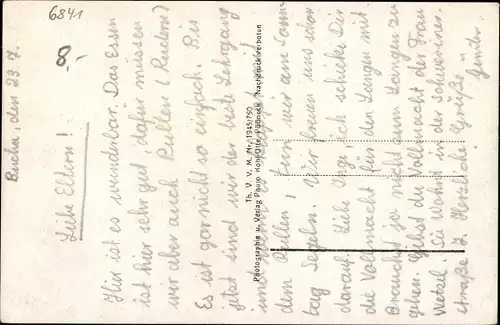 6841
8,-
Bucha, den 23.7.
Liebe Eltern!
Hier ist es wunderbar. Das Essen
ist hier sehr gut dafür müssen
wir aber auch Pullen (Rudern)
Es ist gar nicht so einfach. Bis
jetzt sind wir der beste Lehrgang
dem Pullen! Nun wir am Sonn-
tag Segeln. Wir freuen uns schon
darauf. Liebe Inge ich schicke Dir
die Vollmacht für den Langen mit.
Brauchst ja nicht zum Langen zu
gehen. Gibst du Vollmacht der Frau
Wetzel. Sie wohnt in der
straße 7. Herzliche Grüße
Th. V. V. M. Nr. 1945/750
Photographie u. Verlag Photo Kohl Otto, Pößneck Nachdruck verboten